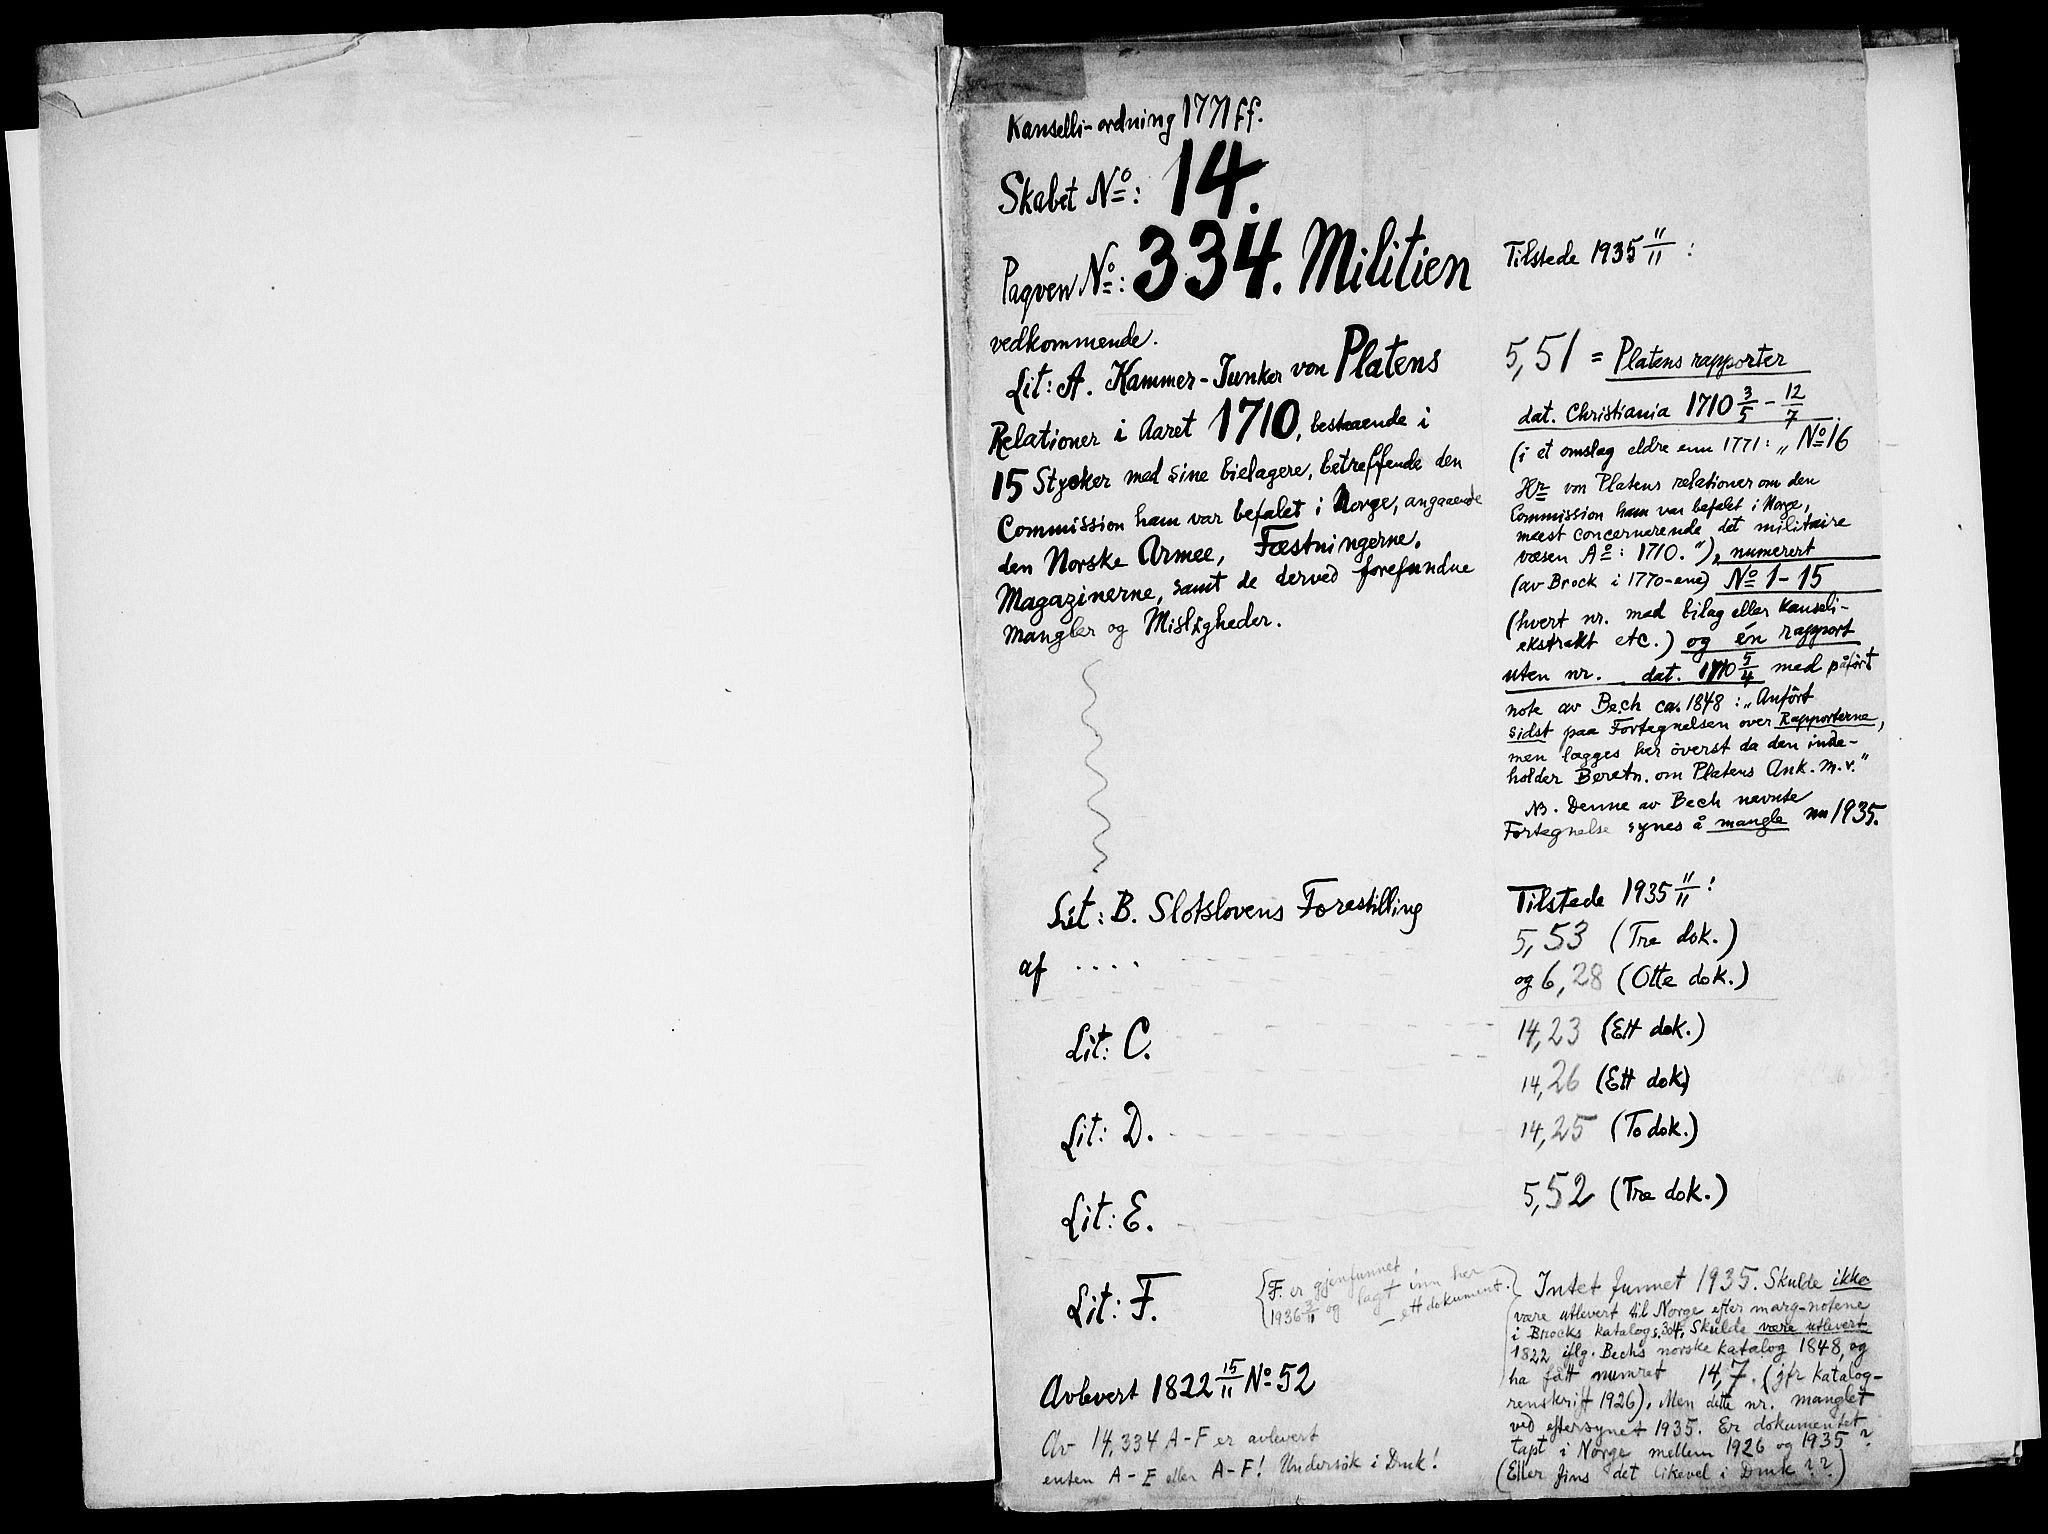 Kanselli-ordning 1771 ff.
Skabet No: 14.
Paqven No: 334. Militien
vedkommende.
Lit: A. Kammer-Junker von Platens
Relationer i Aaret 1710, bestaaende i
15 Stycker med sine bielagere, betreffende den
Commission ham var befalet i Norge, angaaende
den Norske Armee, Fæstningerne.
Magazinerne, samt de derved forefundne
Mangler og Misligheder.
Lit: B. Slotslovens Forestilling
af . . . .
Lit: C.
Lit: D.
Lit: E.
Lit: F.
{F. er gjenfunnet
1936 3/11 og lagt inn her
– ett dokument.
Avlevert 1822 15/11 No 52
Av 14,334 A-F er avlevert
enten A-E eller A-F! Undersøk i Dmk!
Tilstede 1935 11/11 :
5,51 = Platens rapporter
dat. Christiania 1710 3/5 – 12/7
(i et omslag eldre enn 1771: „No 16
Hr von Platens relationer om den
Commission ham var befalet i Norge,
meest concernerende det militaire
væsen Ao: 1710."), numerert
(av Brock i 1770-ene) No 1-15
(hvert nr. med bilag eller kanseli-
ekstrakt etc.) og én rapport
uten nr. dat. 1710 5/4 med påført
note av Bech ca. 1848: „Anført
sidst paa Fortegnelsen over Rapporterne,
men lægges her øverst da den inde-
holder Beretn. om Platens Ank. m.v."
NB. Denne av Bech nevnte
Fortegnelse synes å mangle nu 1935.
Tilstede 1935 11/11 :
5,53 (Tre dok.)
og 6,28 (Otte dok.)
14,23 (Ett dok.)
14,26 (Ett dok.)
14,25 (To dok.)
5,52 (Tre dok.)
Intet funnet 1935. Skulde ikke
være utlevert til Norge efter marg-notene
i Brocks katalog s. 304. Skulde være utlevert
1822 iflg. Bechs norske katalog 1848, og
ha fått numret 14,7. (jfr katalog-
renskrift 1926). Men dette nr. manglet
ved eftersynet 1935. Er dokumentet
tapt i Norge mellem 1926 og 1935?
(Eller fins det likevel i Dmk??)